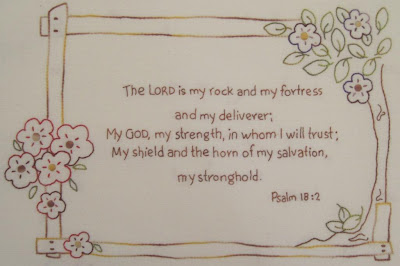 The LORD is my rock and my fortress
and my deliverer;
My GOD, my strength, in whom I will trust;
My shield and the horn of my salvation,
my stronghold.
Psalm 18:2